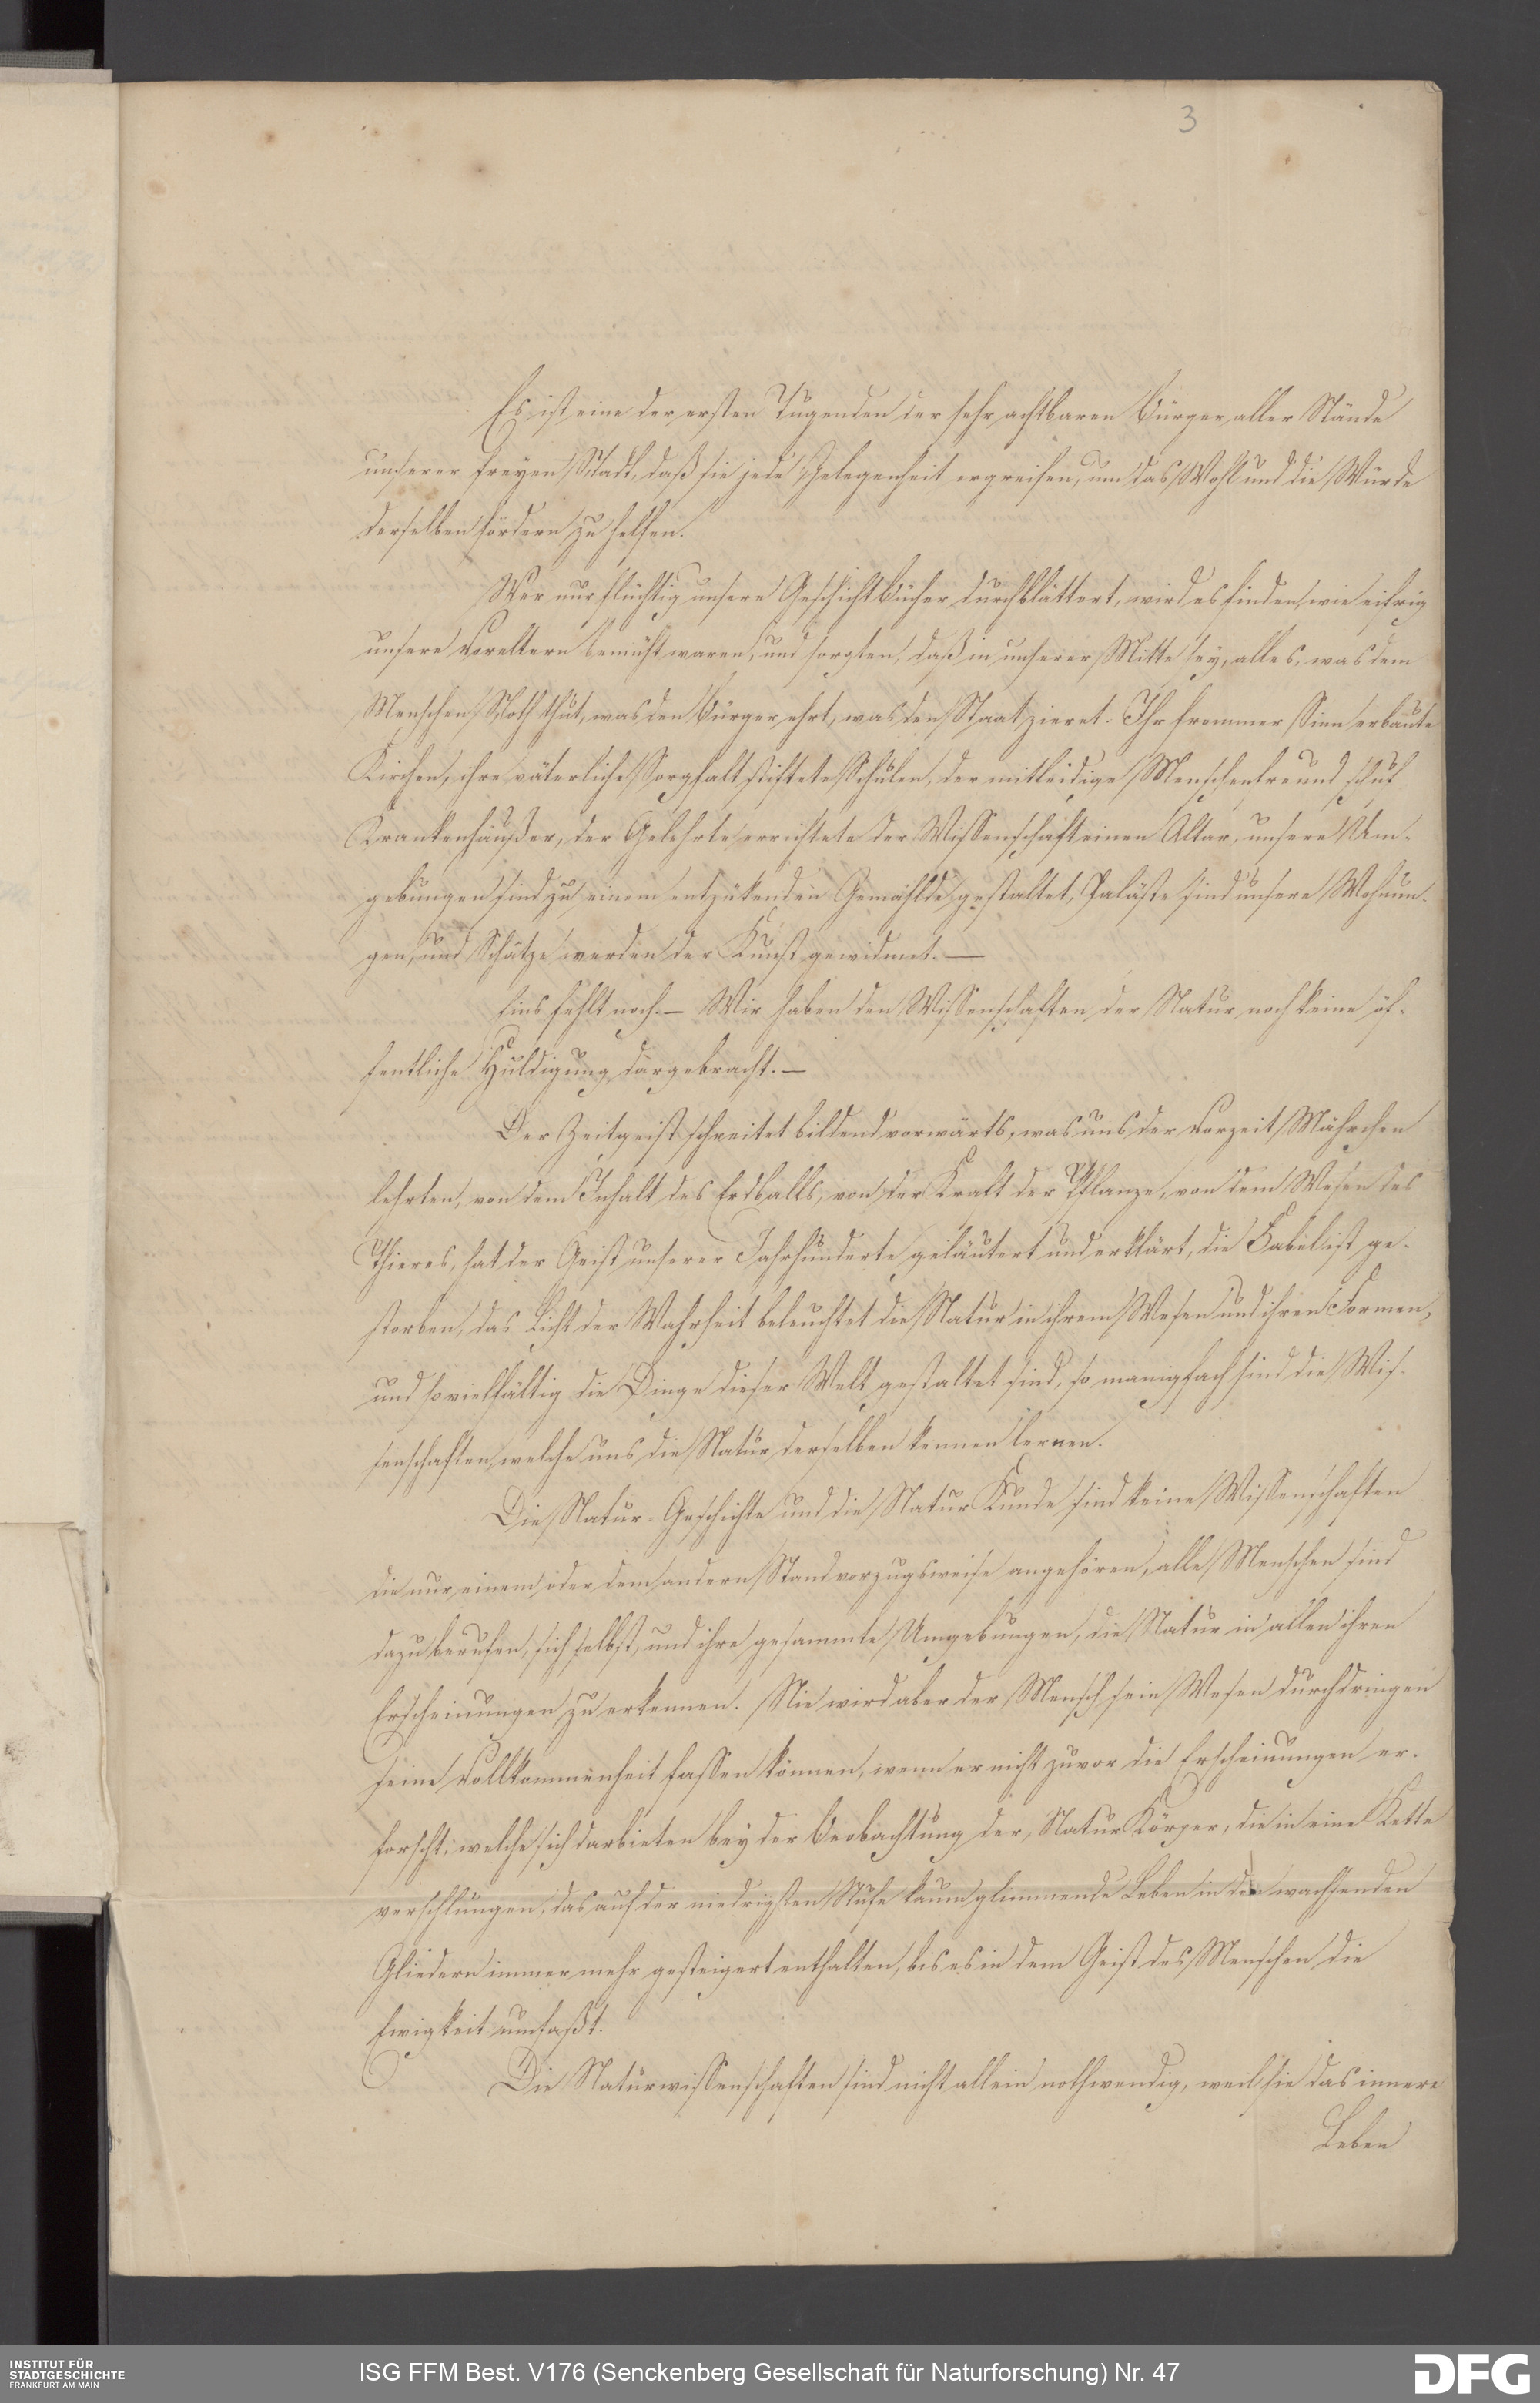 3
Es ist eine der ersten Tugenden der sehr achtbaren Bürger aller Stände
unserer freyen Stadt, daß sie jede Gelegenheit ergreifen, um das Wohl und die Würde
derselben fördern zu helfen.
Wer nur flüchtig unsere Geschichtbücher durchblättert, wird es finden, wie eifrig
unsere Voreltern bemüht waren, und sorgten, daß in unserer Mitte sey, alles, was dem
Menschen Noth thut, was den Bürger ehrt, was den Staat zieret. Ihr frommer Sinn erbaute
Kirchen, ihre väterliche Sorgfalt stiftete Schulen, der mitleidige Menschenfreund schuf
Krankenhäußer, der Gelehrte errichtete der Wissenschaft einen Altar, unsere Um-
gebungen sind zu einem entzükenden Gemählde gestaltet, Paläste sind unsere Wohnun-
gen, und Schätze werden der Kunst gewidmet. —
Eins fehlt noch. — Wir haben den Wissenschaften der Natur noch keine öf-
fentliche Huldigung dargebracht. —
Der Zeitgeist schreitet bildend vorwärts, was uns der Vorzeit Mährchen
lehrten, von dem Inhalt des Erdballs, von der Kraft der Pflanze, von dem Wesen des
Thieres, hat der Geist unserer Jahrhunderte geläutert und erklärt, die Fabel ist ge-
storben, das Licht der Wahrheit beleuchtet die Natur in ihrem Wesen und ihren Formen,
und so vielfältig die Dinge dieser Welt gestaltet sind, so manigfach sind die Wis-
senschaften, welche uns die Natur derselben kennen lernen.
Die Natur-Geschichte und die Natur Kunde sind keine Wissenschaften
die nur einem oder dem andern Stand vorzugsweise angehören, alle Menschen sind
dazu berufen, sich selbst, und ihre gesammte Umgebungen, die Natur in allen ihren
Erscheinungen zu erkennen. Nie wird aber der Mensch sein Wesen durchdringen
seine Vollkommenheit fassen können, wenn er nicht zuvor die Erscheinungen er-
forscht; welche sich darbieten bey der Beobachtung der, Natur Körper, die in eine Kette
verschlungen, das auf der niedrigsten Stufe kaum glimmende Leben in den wachsenden
Gliedern immer mehr gesteigert enthalten, bis es in dem Geist des Menschen die
Ewigkeit umfaßt.
Die Naturwissenschaften sind nicht allein nothwendig, weil sie das innere
Leben
INSTITUT FÜR
STADTGESCHICHTE
FRANKFURT AM MAIN
ISG FFM Best. V176 (Senckenberg Gesellschaft für Naturforschung) Nr. 47
DFG